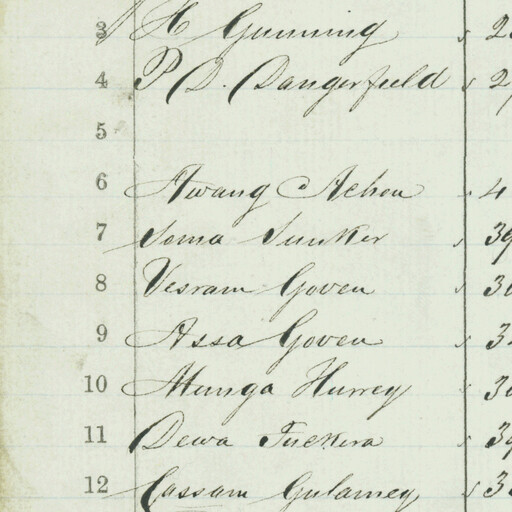 3 H Gunning
4 P D. Dangerfield
5
6 Awang Achou
7 Soma Sunker
8 Vesram Goven
9 Assa Goven
10 Munga Hurrey
11 Dewa Tuckera
12 Cassam Gulamey